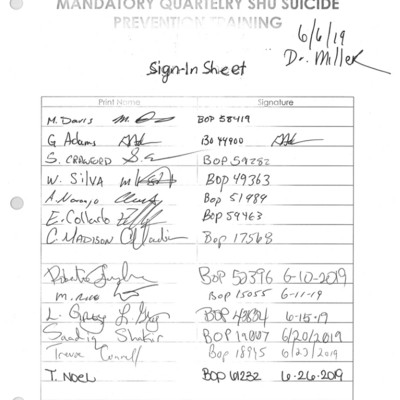 MANDATORY QUARTELRY SHU SUICIDE
PREVENTION TRAINING
6/6/19
Dr. Miller
Sign-In Sheet
Print Name Signature
M. Davis BOP 58419
G Adams BO 44900
S. CRAWFORD BOP 59282
W. SILVA BOP 49363
A. Naranjo BOP 51989
E. Collado BOP 59463
C. MADISON C Madison BOP 17568
BOP 50396 6-10-2019
M. RICO BOP 15055 6-11-19
L. Grey L. Grey BOP 6-15-19
Saadiq Shakir BOP 6/20/2019
Trevor BOP 18945 6/23/2019
T. NOEL BOP 6-26-2019